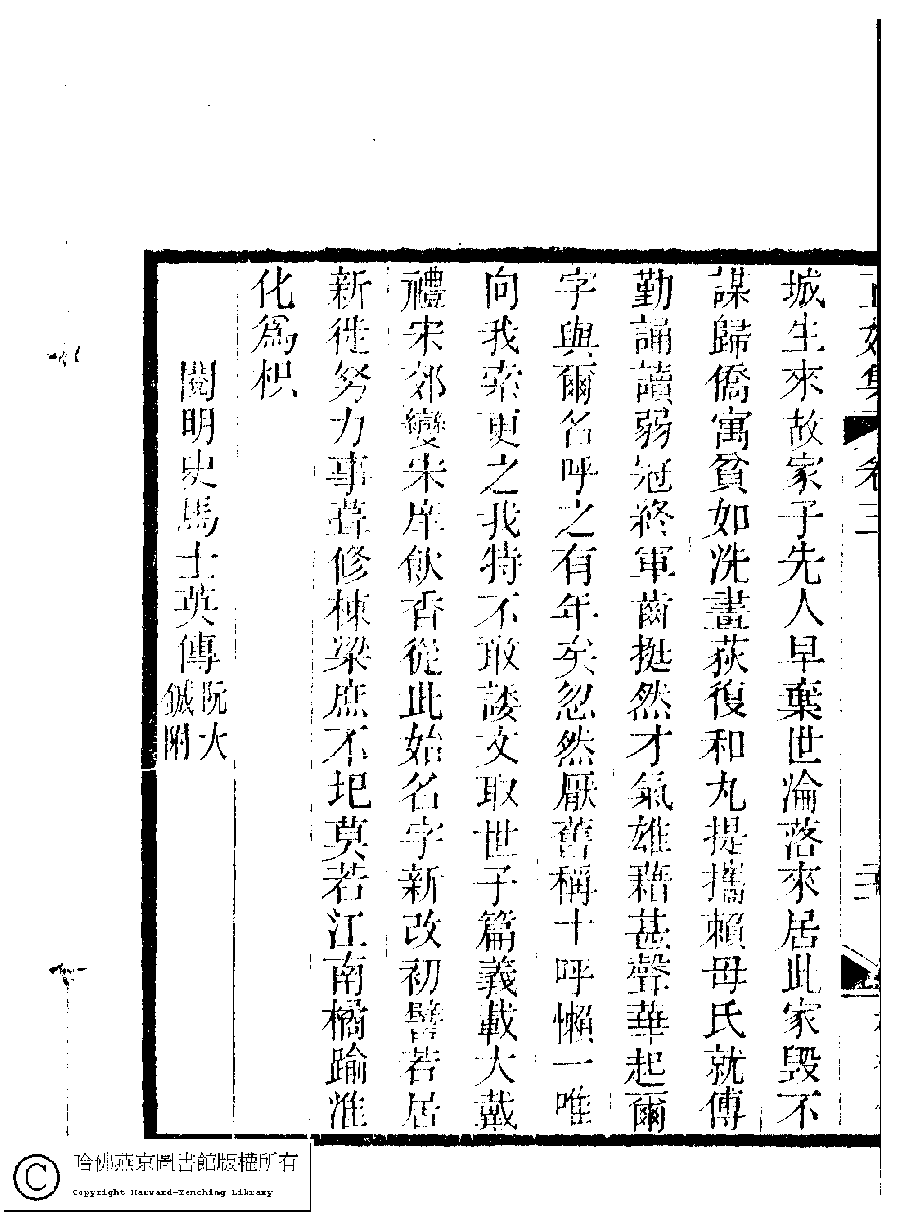 城生來故家子先人早棄世淪落來居此家毀不
謀歸僑寓貧如洗畫荻復和丸提攜賴母氏就傅
勤誦讀弱冠終軍齒挺然才氣雄藉甚聲華起爾
字與爾名呼之有年矣忽然厭舊稱十呼懶一唯
向我索更之我特不敢諉文取世子篇義載大戴
禮宋郊變宋庠飲香從此始名字新改初譬若居
新徙努力事葺修棟梁庶不圮莫若江南橘踰淮
化爲枳
閱明史馬士英傳阮大
鋮附
哈佛燕京圖書館版權所有
Copyright Harvard-Yenching Library